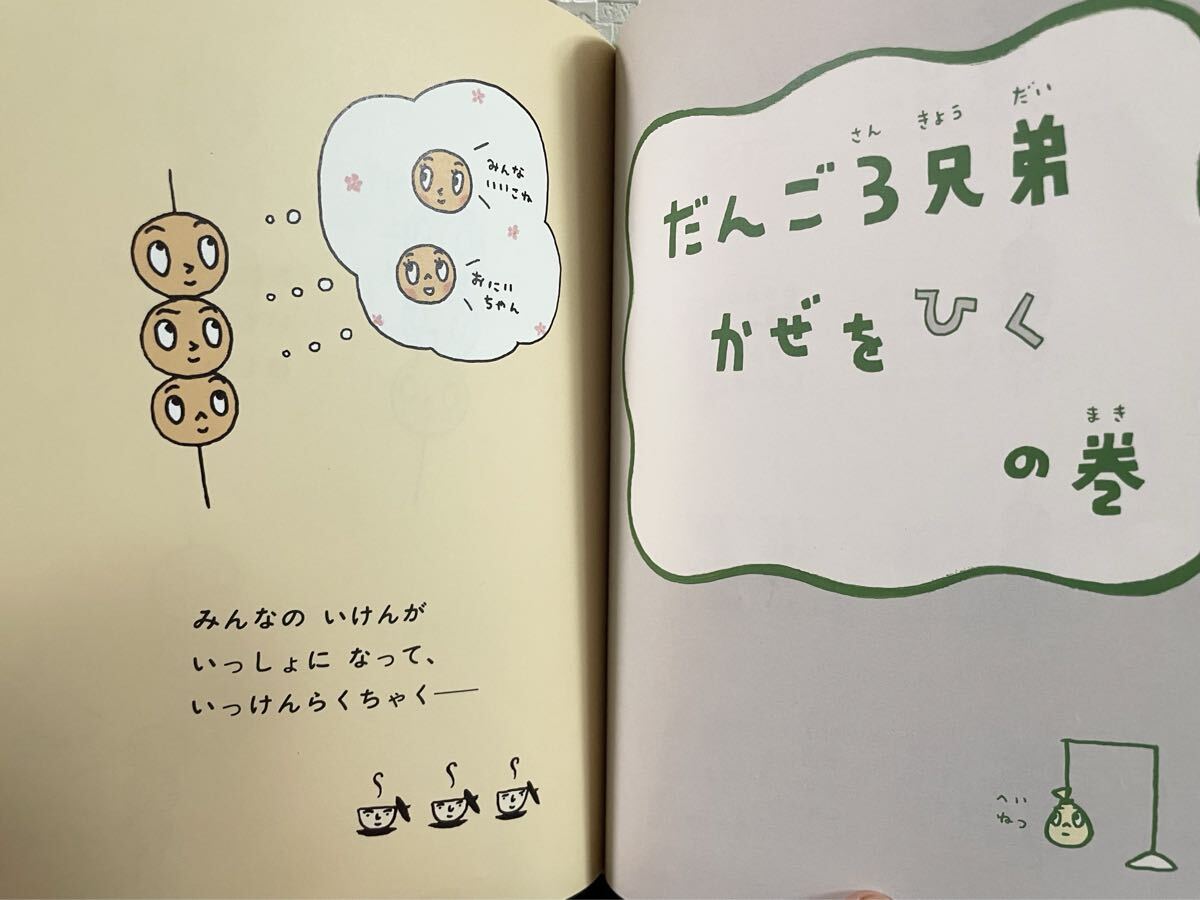 みんな
いいこね
おにい
ちゃん
みんなの いけんが
いっしょに なって、
いっけんらくちゃく――
さん きょう だい
だんご3兄弟
かぜをひく
まき
の巻
へい
ねつ